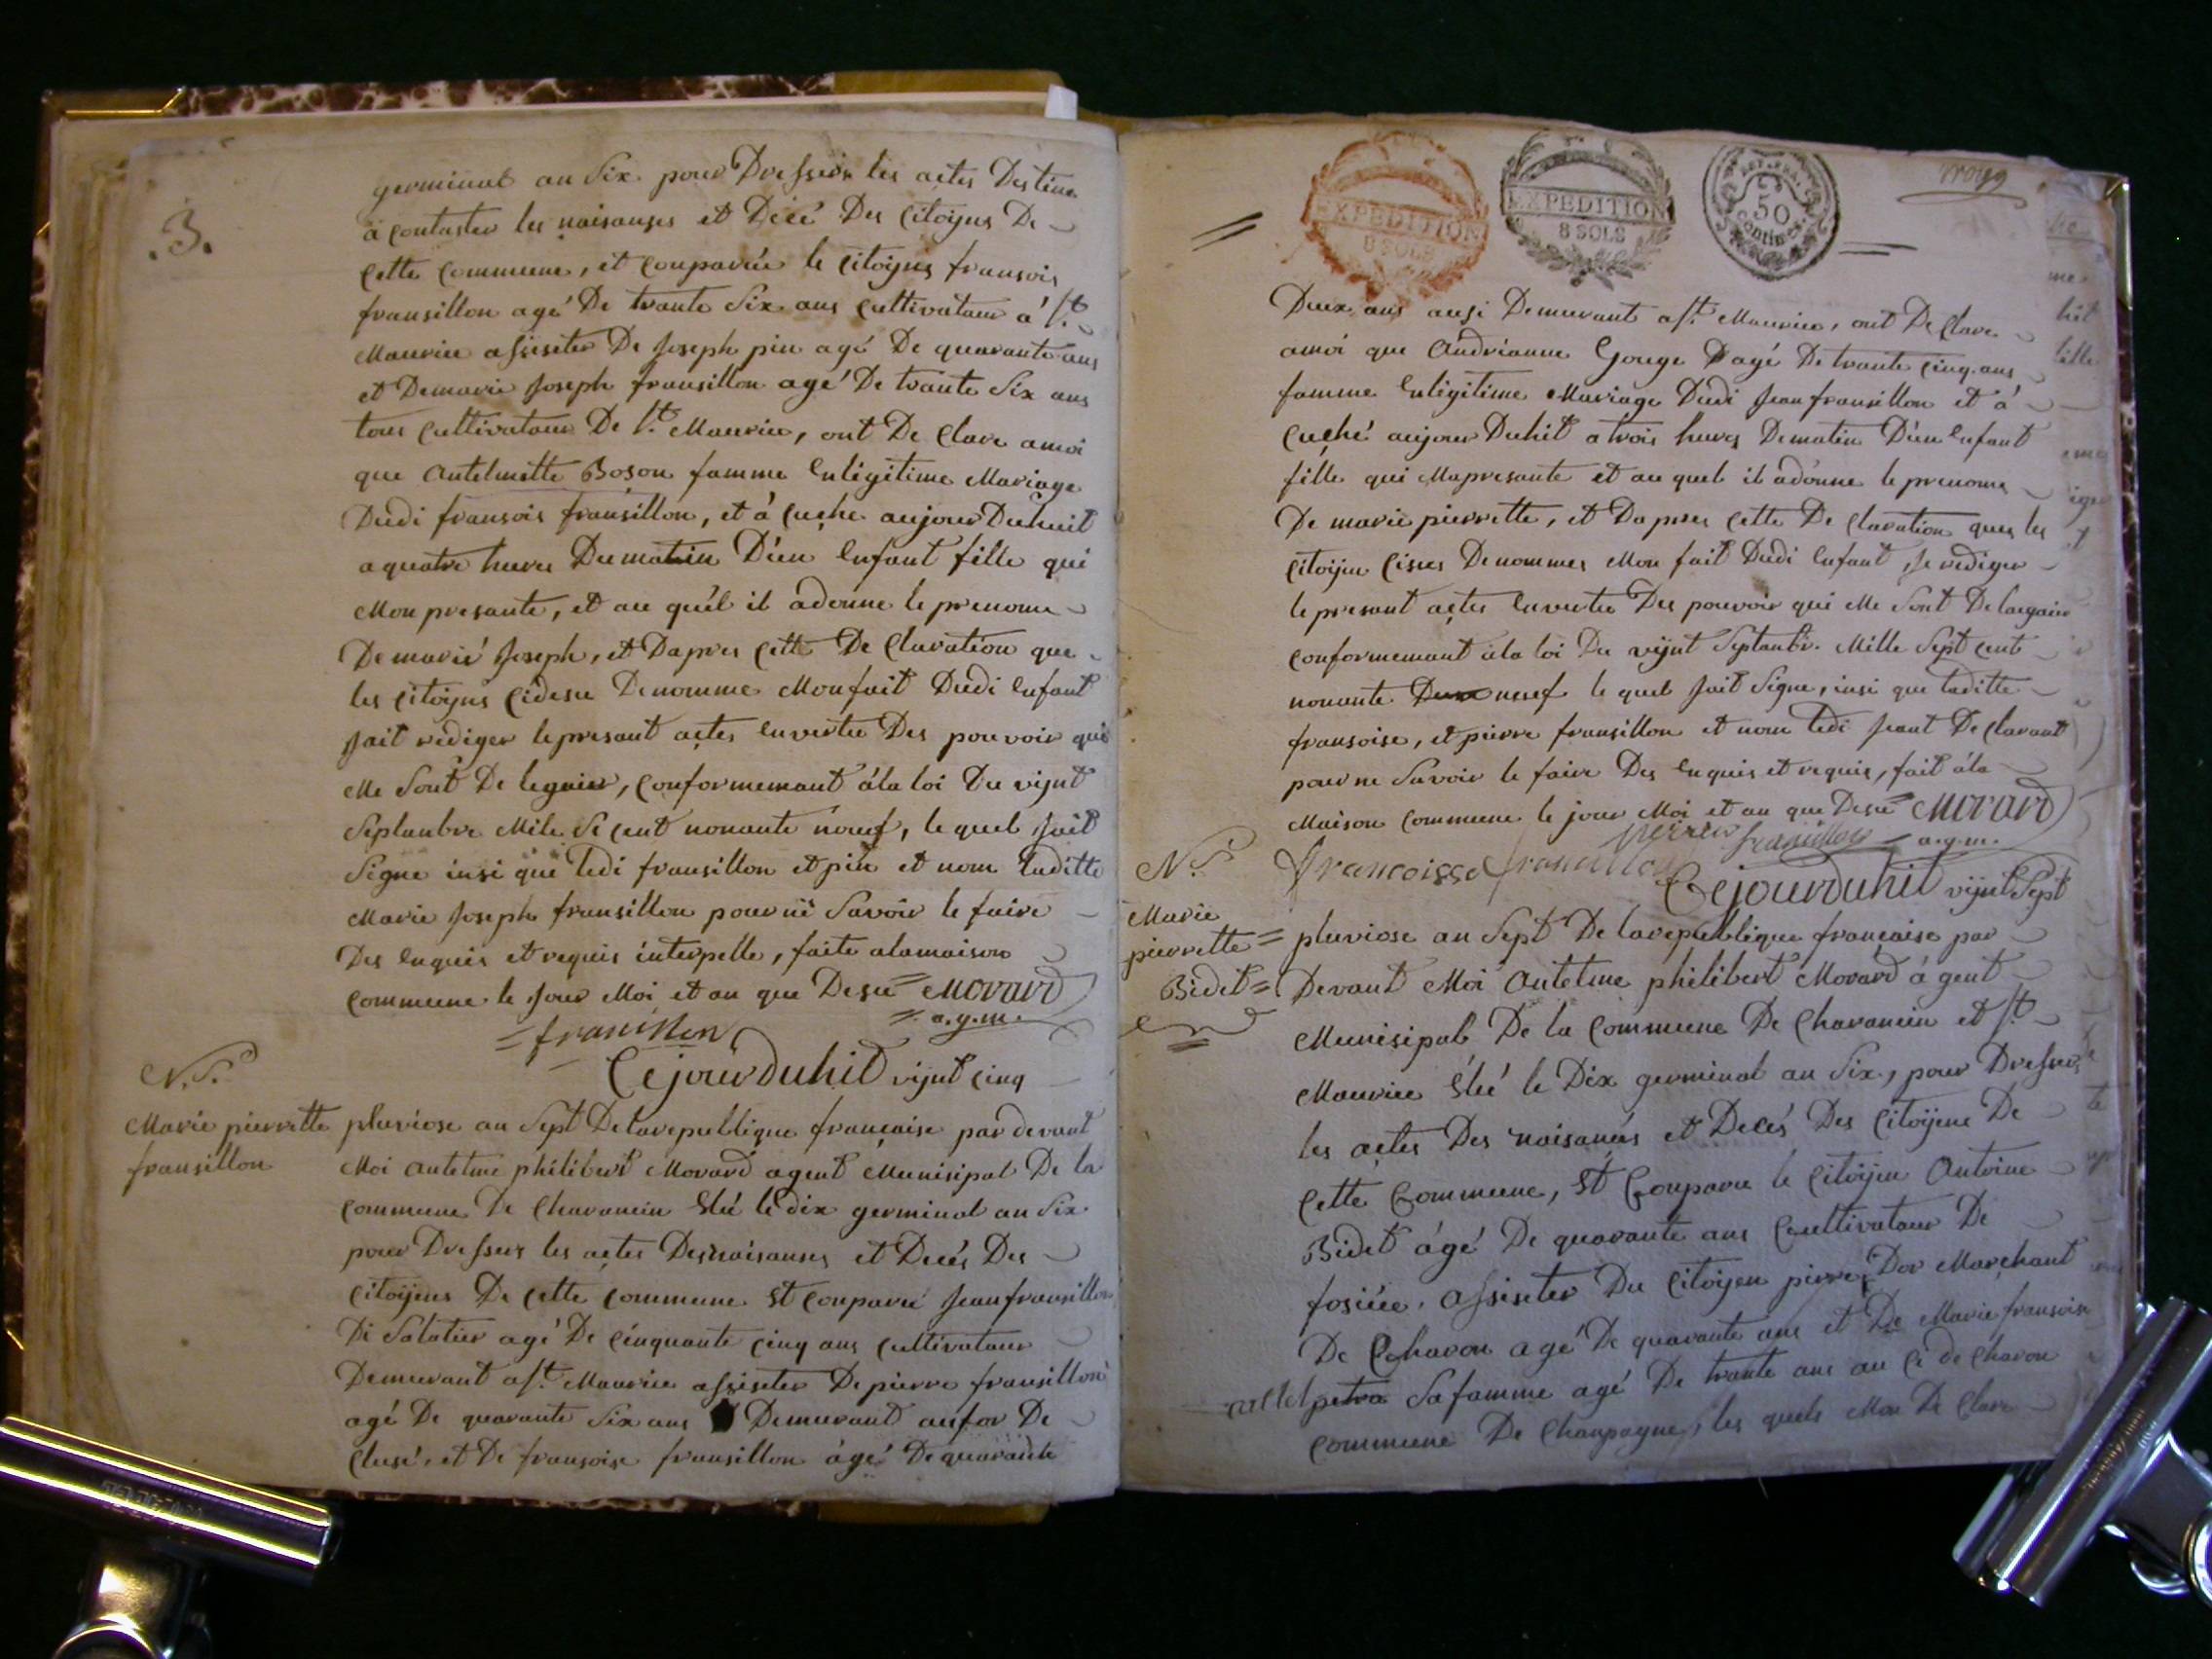 .3.
germinal an Six pour Dresser les actes Destine
a Contaster les naisanses et Décé Des Citoyens De
Cette Commune, et Conparüe le Citoyens fransois
fransillon agé De trante Six ans Cultivateur a St.
Maurice assister De Joseph pin agé De quarante ans
et Demarie Joseph fransillon agé De trante Six ans
tous Cultivateur De St. Maurice, ont De Clare amoi
que Antelmette Boson famme Enlégitime Mariage
Dudi fransois fransillon, et à Cuche aujour Duhuit
a quatre heures Dumatin D'un Enfant fille qui
Mon presante, et au quel il adonne le prenome
Demarie Joseph, et Dapres Cette De Claration que
les Citoyens Cidesu Denomme Monfait Dudi Enfant
Jait rediger lepresant actes Envertu Des pouvoir qui
Me Sont De leguier, Conformemant àla loi Du vijnt
Septanbre Mile Se Cent nonante nouef, le quel Jait
Signe insi que ledi fransillon et pin et nom laditte
Marie Joseph fransillon pour në Savoir le faire
Des Enquis et requis interpelle, faite alamaison
Commune le Jour Moi et an que Desu = Morard
= fransillon = a.g.m.
N.º
Marie pierrette
fransillon
Cejourduhit vijnt Cinq
pluviose an Sept Delarepublique française par devant
Moi Antelme philibert Morard agent Munisipal De la
Commune De Chavanein Elué le dix germinal an Six
pour Dresser les actes Desnaisanses et Décés Des
Citoyens De Cette Commune Et Conparüe Jean fransillon
Di Salatier agé De Cinquante Cinq ans Cultivateur
Demurant a St. Maurice assister De pierre fransillon
agé De quarante Six ans Demurant aufor De
Clusé, et De fransoise fransillon âgé De quarante
EXPEDITION
8 SOLS
EXPEDITION
8 SOLS
50
Centimes
Deux ans ausi Demurant a St. Maurice, ont De Clare
amoi que Andrianne Gouge D'agé De trante Cinq ans
famme Enlégitime Mariage Dudi Jean fransillon et à
Cuché aujour Duhit a trois hures Dematin D'un Enfant
fille qui Mapresante et au quel il adonne le prenome
De marie pierrette, et Dapres Cette De Claration ques les
Citoyen Cisus Denommes Mon fait Dudi Enfant, Je rediger
le presant actes Envertu Des pouvoir qui Me Sont Delegaire
Conformemant àla loi Du vijnt Septanbr. Mille Sept Cent
nonante neuef le quel Jait Signe, insi que laditte
fransoise, et pierre fransillon et nom ledi Jeant De Clarant
pour ne Savoir le faire Des Enquis et requis, fait àla
Maison Commune le jour Moi et an que Desu = Morard
pierre fransillon = a.g.m.
francoisse fransillon
N.º
Marie
pierrette =
Bidet =
Cejourduhit vijnt Sept
pluviose an Sept De larepublique française par
Devant Moi Antelme philibert Morard à gent
Munisipal De la Commune De Chavanein et St.
Maurice Elué le Dix germinal an Six, pour Dresser
les actes Des naisances et Decés Des Citoyene De
Cette Commune, Et Conparu le Citoyen Antoine
Bidet âgé De quarante ans Cultivateur De
fosiéu, Assister Du Citoyen pierre Dor Marchant
De Charon agé De quarante ans et De Marie fransoise
petra Sa famme agé De trante ans au Ci de Charon
Commune De Chanpagne, les quels Mon De Clare